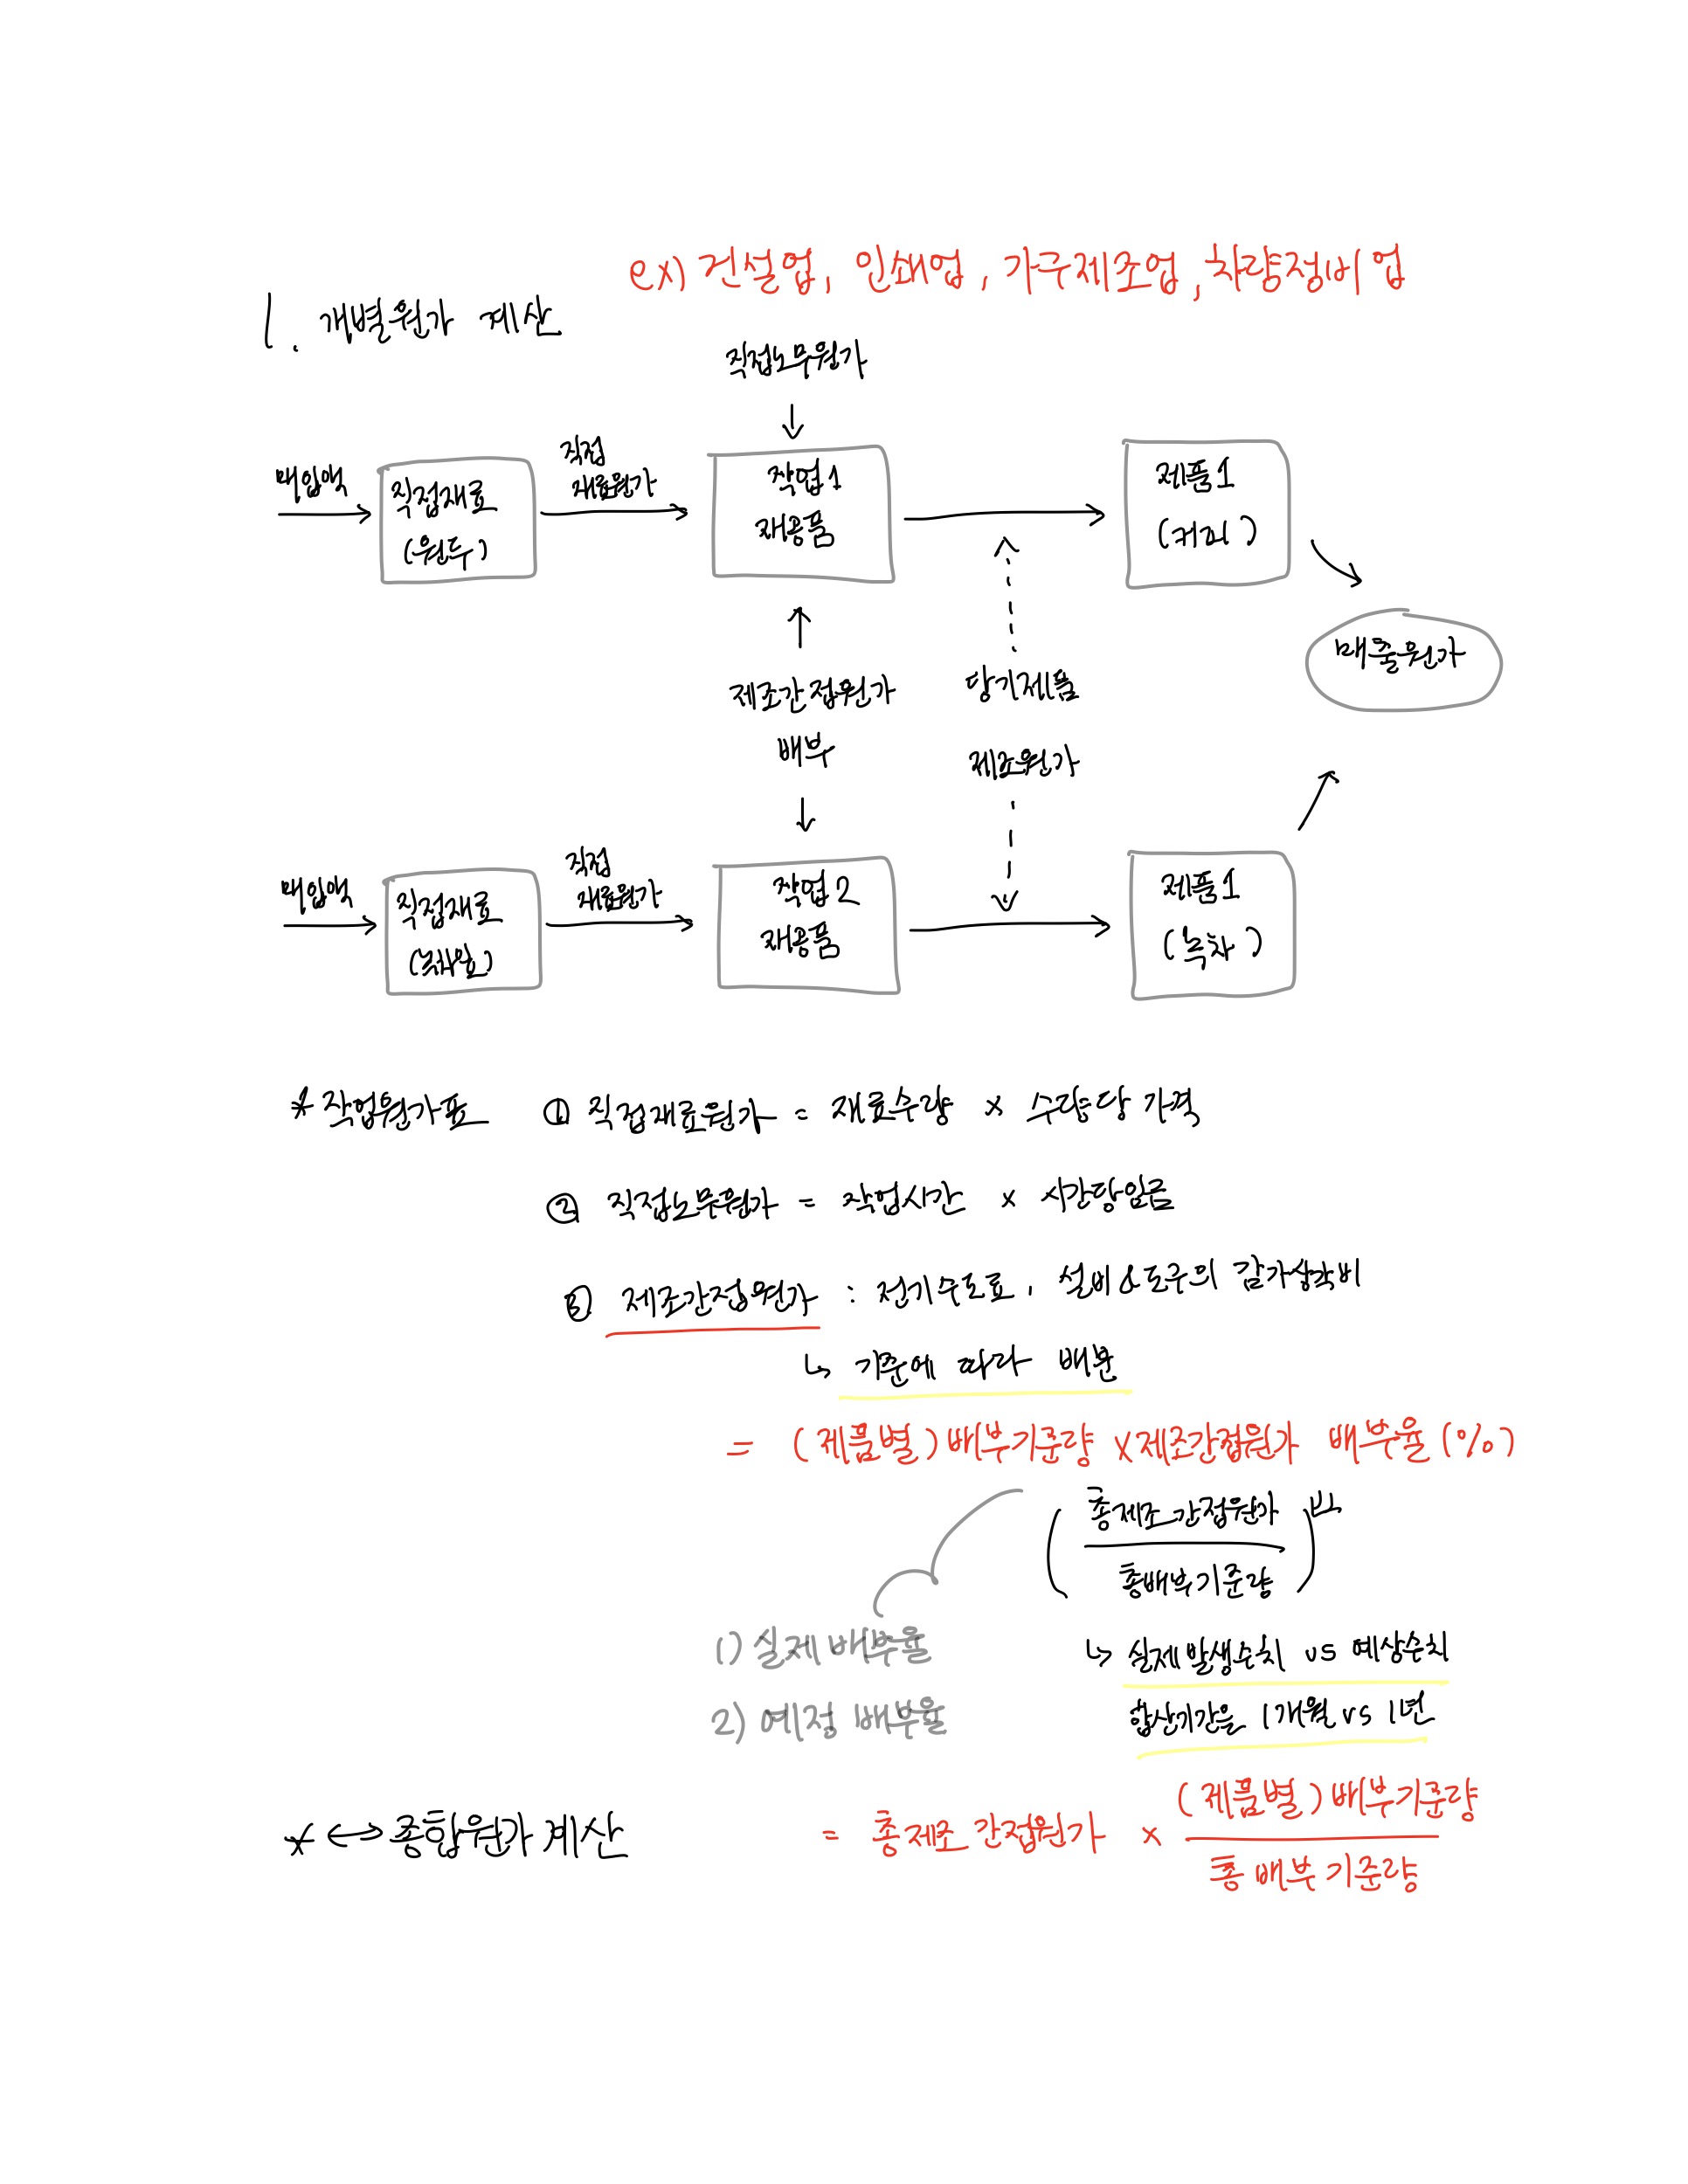 ex) 건설업, 인쇄업, 가구제조업, 차량정비업
1. 개별원가 계산
직접노무원가
매입액
직접재료
(원두)
직접
재료원가
작업1
재공품
제품1
(커피)
매출원가
제조간접원가
배부
당기제품
제조원가
매입액
직접재료
(녹차잎)
직접
재료원가
작업2
재공품
제품1
(녹차)
* 작업원가표 ① 직접재료원가 = 재료수량 x 수량당 가격
② 직접노무원가 = 작업시간 x 시간당임금
③ 제조간접원가 : 전기수도료, 설비&도구의 감가상각비
↳ 기준에 따라 배분
= (제품별) 배부기준량 x 제조간접원가 배부율 (%)
( 총제조간접원가 / 총배부기준량 )
1) 실제 배부율
2) 예정 배부율
↳ 실제발생수치 vs 예상수치
합산기간을 1개월 vs 1년
* ↔ 종합원가 계산
= 총제조간접원가 x (제품별) 배부기준량 / 총 배부기준량